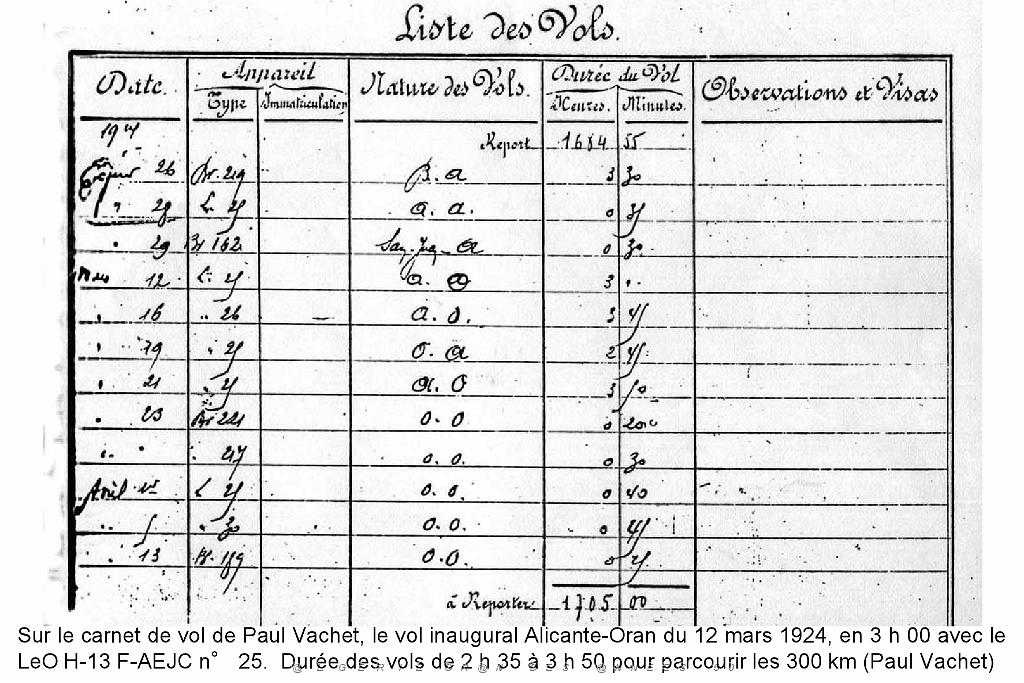 Liste des Vols.
Date. Appareil Nature des Vols. Durée du Vol Observations et Visas
Type Immatriculation Heures. Minutes.
Report 1684 55
26 Br. 219 B. a 3 30
" 28 L. 25 a. a. 0 35
" 29 Br 162 a 0 30.
Mars 12 L. 25 a. O 3 "
" 16 " 26 a. O. 3 45
" 19 " 25 O. a 2 45
" 21 " 25 a. O 3 50
" 23 Br 221 O. O 0 20
" " " 217 O. O. 0 30
Avril 1er L 25 O. O. 0 40
" 5 " 30 O. O. 0 45
" 13 Br. 189 O. O. 0 25
à Reporter 1705 00
Sur le carnet de vol de Paul Vachet, le vol inaugural Alicante-Oran du 12 mars 1924, en 3 h 00 avec le
LeO H-13 F-AEJC n° 25. Durée des vols de 2 h 35 à 3 h 50 pour parcourir les 300 km (Paul Vachet)